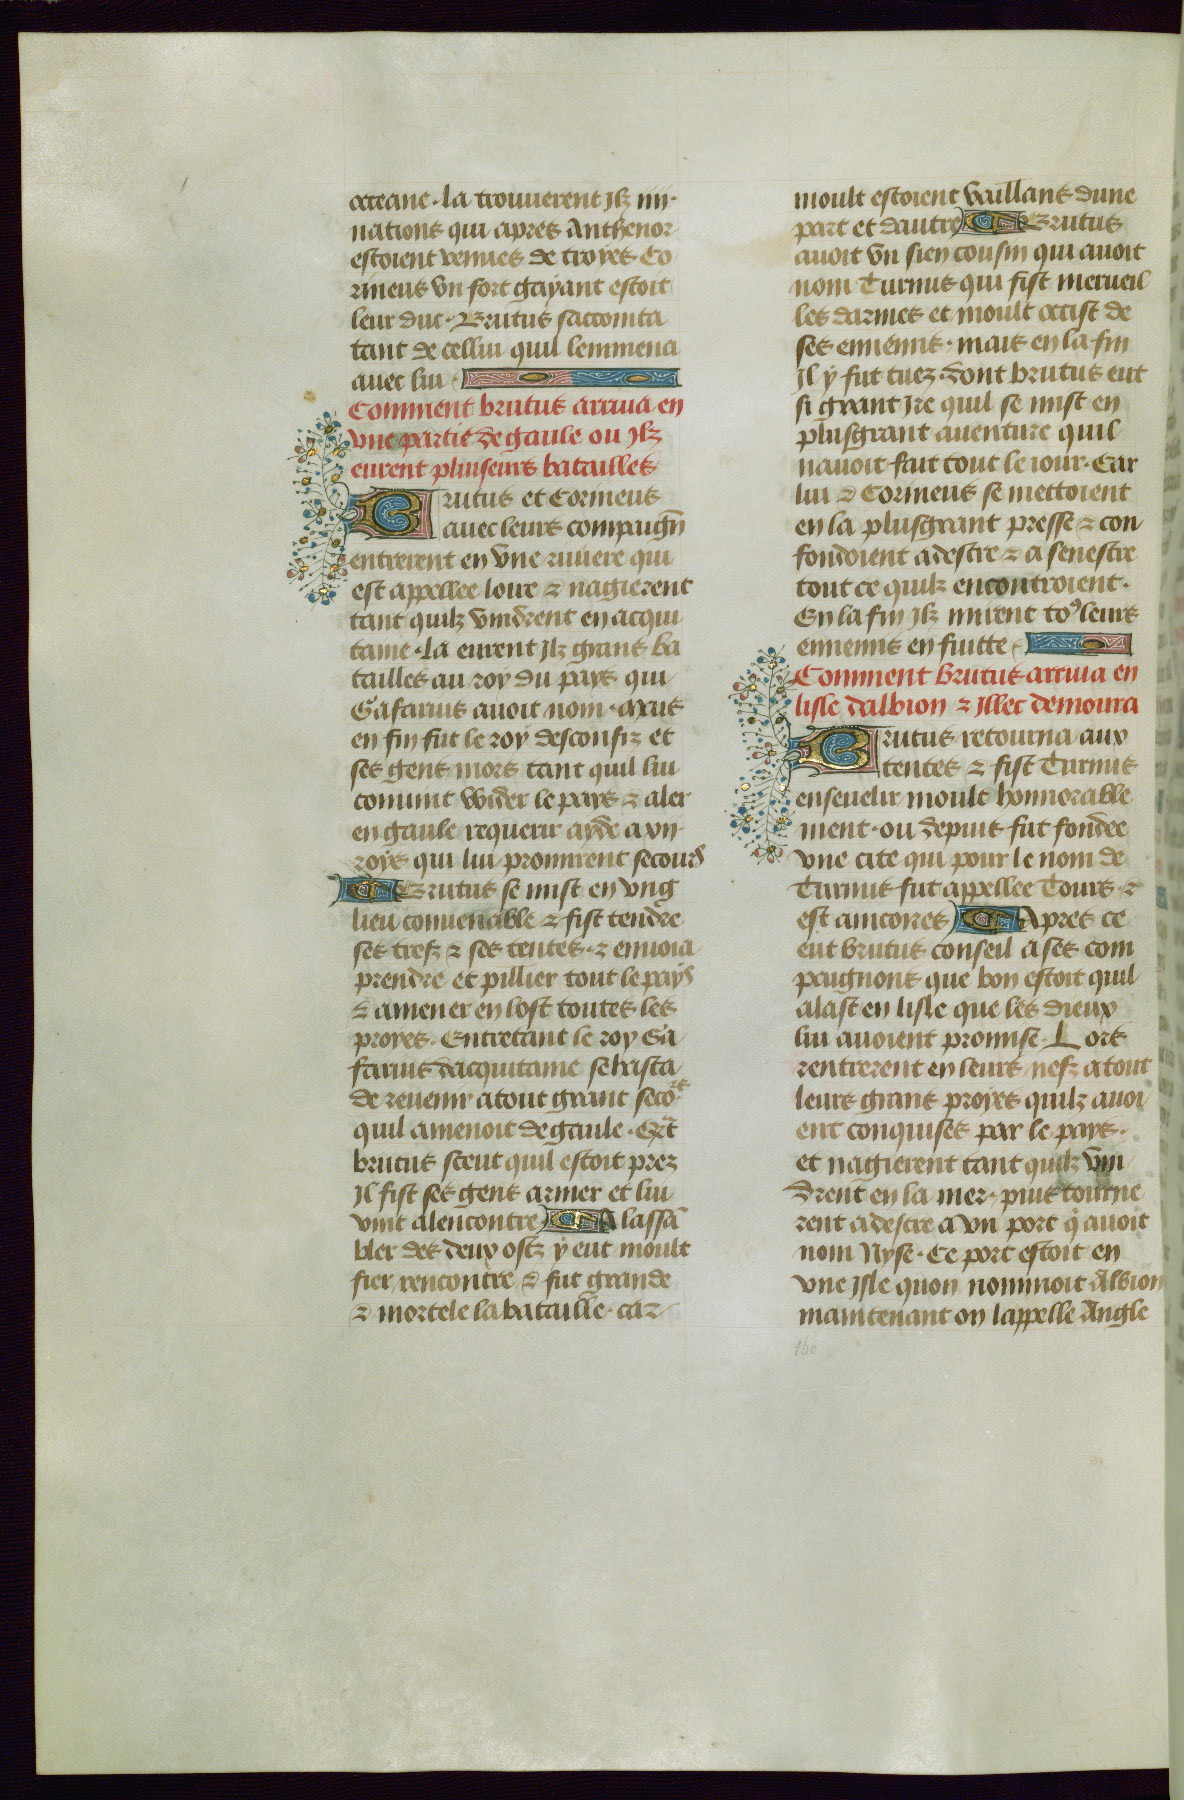 occeane · La trouuerent Jlz iiij ·
nations qui apres Anthenor
estoient venues de troyes Co
rineus vn fort gayant estoit
leur duc · Brutus saccointa
tant de cellui quil lemmena
auec lui ·
Comment brutus arriua en
vne partie de gaule ou Jlz
eurent pluiseurs batailles
Brutus et Corineus
auec leurs compaign̄
entrerent en vne riuiere qui
est appellee loire ⁊ nagierent
tant quilz vindrent en acqui
taine · La eurent Jlz grans ba
tailles au roy du pays qui
Gafarius auoit nom · maiis
en fin fut le roy desconfiz et
ses gens mors tant quil lui
conuint wider le pays ⁊ aler
en gaule requerir ayde a xij ·
roys qui lui promirent secours
Brutus se mist en vng
lieu conuenable ⁊ fist tendre
ses trefz ⁊ ses tentes · ⁊ enuoia
prendre et pillier tout le pays
⁊ amener en lost toutes les
proyes · Entretant le roy Ga
farius dacquitaine se hasta
de reuenir atout grant seco͛s
quil amenoit de gaule · Qr̄t
brutus sceut quil estoit prez
Jl fist ses gens armer et lui
vint alencontre A lassā
bler des deux ostz y eut moult
fier rencontre ⁊ fut grande
⁊ mortele la bataille · car
moult estoient vaillans dune
part et dautre Brutus
auoit vn sien cousin qui auoit
nom Turnus qui fist merueil
les darmes et moult occist de
ses ennemis · mais en la fin
Jl y fut tuez · dont brutus eut
si grant Jre quil se mist en
plusgrant auenture quil
nauoit fait tout le iour · Car
lui ⁊ Corineus se mettoient
en la plusgrant presse ⁊ con
fondoient adestre ⁊ a senestre
tout ce quilz encontroient ·
En la fin Jlz mirent toꝰ leurs
ennemis en fuitte ·
Comment Brutus arriua en
lisle dalbion ⁊ Jllec demoura
Brutus retourna aux
tentes ⁊ fist Turnus
enseuelir moult honnorable
ment · ou depuis fut fondee
vne cite qui pour le nom de
Turnus fut appellee Tours · ⁊
est aincores Apres ce
eut brutus conseil a ses com
paignons que bon estoit quil
alast en lisle que les dieux
lui auoient promise · Lors
rentrerent en leurs nefz atout
leurs grans proyes quilz auoi
ent conquises par le pays ·
et nagierent tant quilz vin
drent en la mer · puis tourne
rent adestre a vn port q̄ auoit
nom Nyse · Ce port estoit en
vne Jsle quon nommoit Albion
maintenant on lappelle Angle
160